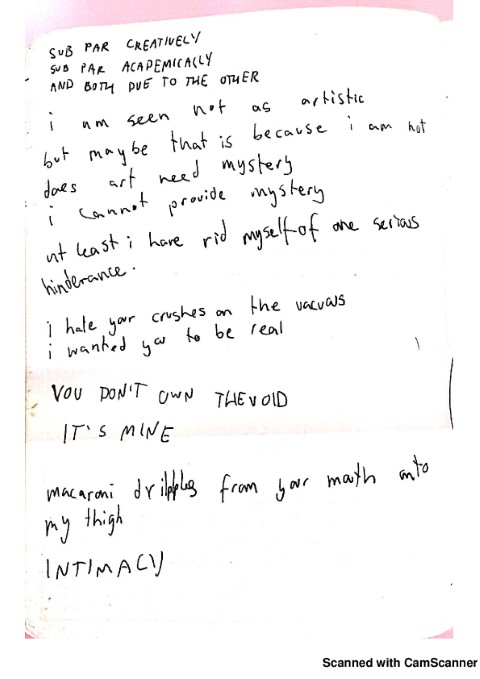 SUB PAR CREATIVELY
SUB PAR ACADEMICALLY
AND BOTH DUE TO THE OTHER
i am seen not as artistic
but maybe that is because i am not
does art need mystery
i cannot provide mystery
at least i have rid myself of one serious
hinderance.
i hate your crushes on the vacuous
i wanted you to be real
YOU DON'T OWN THE VOID
IT'S MINE
macaroni dribbles from your mouth onto
my thigh
INTIMACY
Scanned with CamScanner